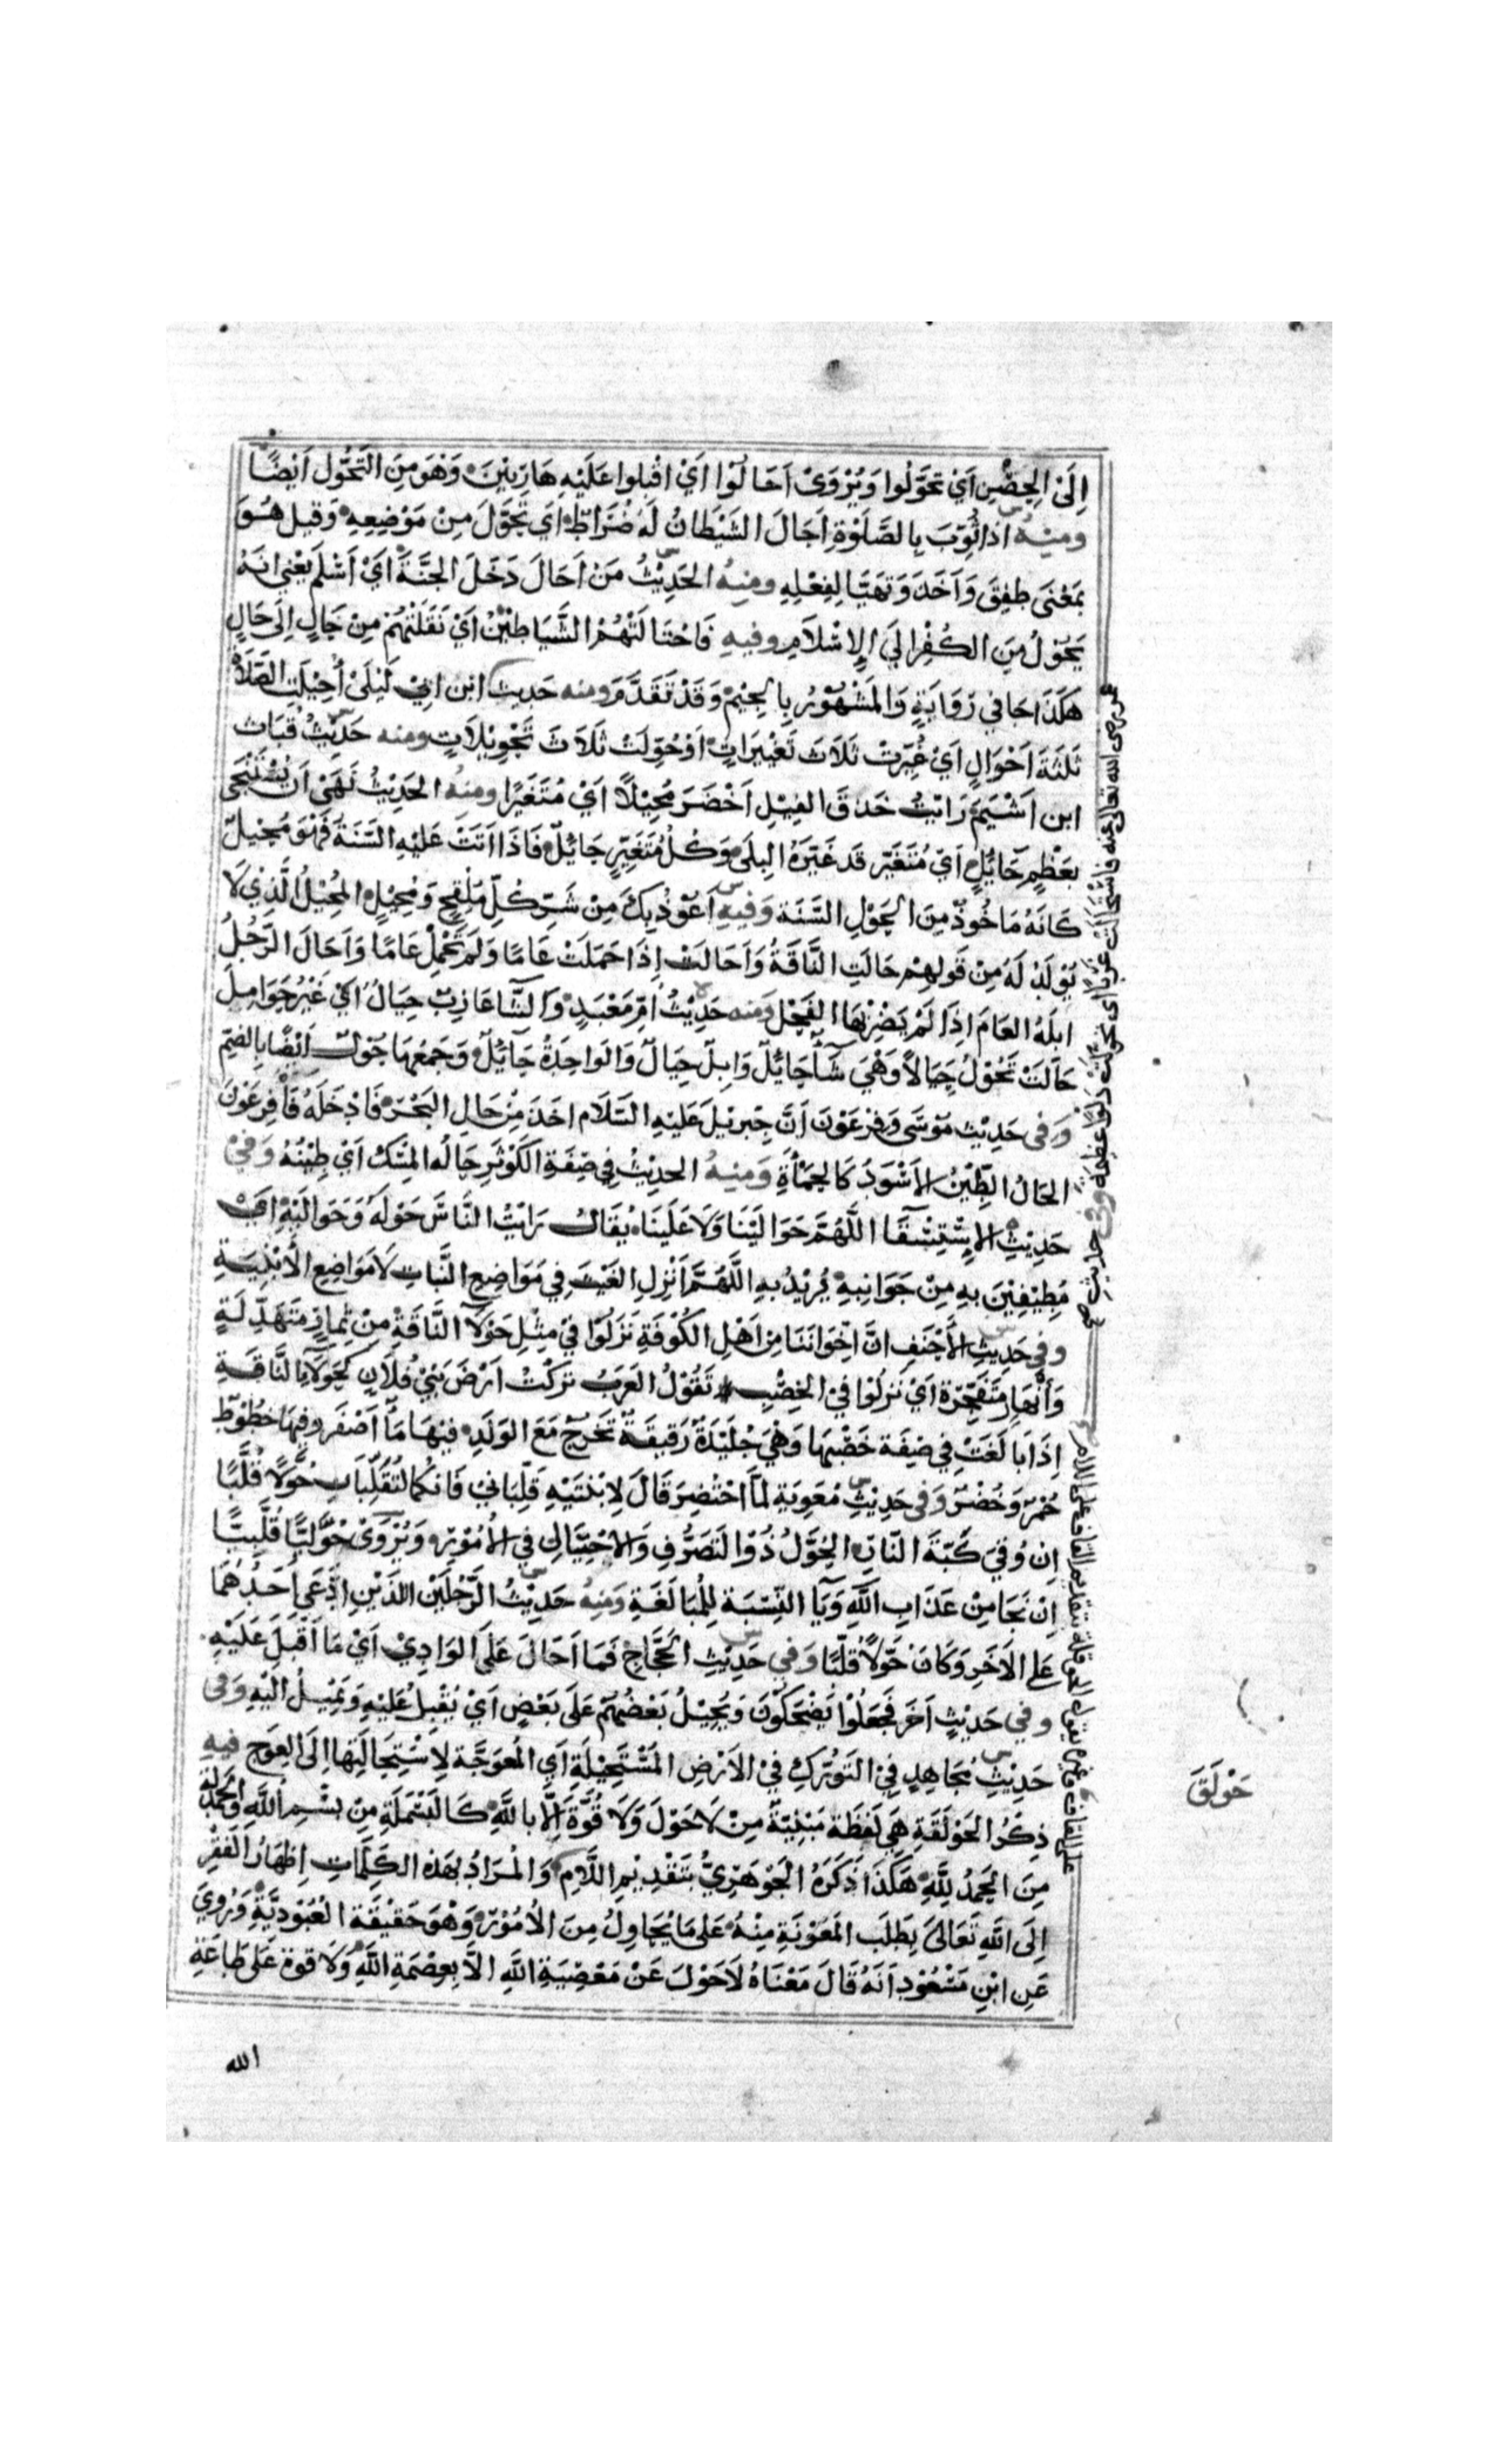 اِلَى الحِصْنِ اَيْ تَحَوَّلُوا وَيُرْوَىْ اَحَالُوْا اَيْ اقْبَلوا عَلَيْهِ هَارِبِيْنَ وَهْوَ مِنَ التَّحَوُّلِ اَيْضًا
ومنهُ اذا ثُوِّبَ بِالصَّلَوٰةِ اَحَالَ الشَّيْطَانُ لَهُ ضُرَاطٌ اَيْ تَحَوَّلَ مِنْ مَوْضِعِهِ وَقيل هُوَ
بِمَعْنَى طفِقَ وَاَخَذَ وَتَهَيَّا لِفِعْلِهِ ومنهُ الحَدِيْثُ مَنْ اَحَالَ دَخَلَ الجَنَّةَ اَيْ اَسْلَمَ يَعْني انهُ
يَحُوْلُ مِنَ الكُفْرِ اليَ الاِسْلَامِ وفيهِ فَاحْتَالَتْهُمُ الشَّيَاطِيْنُ اَيْ نَقَلَتْهُمْ مِنْ حَالٍ اِلَى حَالٍ
هٰكَذَا جَا في رِوَايَةٍ وَالمَشْهُوْرُ بِالجِيْمِ وَقَدْ تَقَدَّمَ ومنه حَدِيث ابن ابيْ لَيْلَىْ اُحِيْلَتِ الصَّلَاةُ
ثَلٰثَةَ اَحْوَالٍ اَيْ غُيِّرَتْ ثَلَاثَ تَغْيِيْرَاتٍ اَوْ حُوِّلَتْ ثَلَاثَ تَحْوِيْلَاتٍ ومنه حَدِيْثُ قُبَاث
ابن اَشْيَمَ رَاَيْتُ خَذقَ الفِيْلِ اَخْضَرَ مُحِيْلًا اَيْ مُتَغَيِّرًا ومنهُ الحَدِيْثُ نَهَىْ اَنْ يُسْتَنْجَى
بعَظْمٍ حَائِلٍ اَيْ مُتَغَيِّرٍ قَد غَيَّرَهُ البِلَى وَكُلُّ مُتَغَيِّرٍ حَائِلٌ فَاذَا اَتَتْ عَلَيْهِ السَّنَةُ فَهْوَ مُحِيْلٌ
كَانَهُ مَاخُوذٌ مِنَ الحَوْلِ السَّنَة وَفيهِ اَعُوْذُ بِكَ مِنْ شَرِّ كُلِّ مُلْقِحٍ وَمُحِيْلٍ المُحِيْلُ الَّذِيْ لَا
يُوْلَدُ لَهُ مِنْ قَولهِمْ حَالَتِ النَّاقَةُ وَاَحَالَتْ اِذَا حَمَلَتْ عَامًا وَلَمْ تَحْمِلْ عَامًا وَاَحَالَ الرَّجُلُ
ابلَهُ العَامَ اِذَا لَمْ يَضْرِبْهَا الفَحْلُ وَمنه حَدِيْثُ اُمِّ مَعْبَدٍ وَالشَّا عَازِبٌ حِيَالٌ اَيْ غَيْرُ حَوَامِلَ
حَالَتْ تَحُوْلُ حِيَالاً وَهْيَ شَا حَائِلٌ وَابِلٌ حِيَالٌ وَالوَاحِدَةُ حَائِلٌ وَجَمْعُهَا حُوْلٌ اَيْضًا بِالضَّمِ
وَفي حَدِيْث مَوْسَى وَفِرْعَوْنَ اَنَّ جِبرئِيلَ عَلَيْهِ السَّلَام اخَذَ مِنْ حَالِ البَحْرِ فَادْخَلَهُ فَا فِرْعَوْنَ
الحَالُ الطِّيْنُ الاَسْوَدُ كَالحَمْأَةِ وَمنهُ الحديْثُ فِي صِفَةِ الكَوْثَرِ حَالُهُ المِسْكُ اَيْ طِيْنُهُ وَفيْ
حَدِيْثِ الاِسْتِسْقَا اللّٰهُمَّ حَوَالَيْنَا وَلَا عَلَيْنَا يُقَالُ رَاَيْتُ النَّاسَ حَوْلَهُ وَحَوَالَيْهِ ايْ
مُطِيْفِيْنَ بهِ مِنْ جَوَانِبهِ يُرِيْدُ بهِ اللَّهُمَّ اَنْزِلِ الغَيْثَ فِي مَوَاضِعِ النَّبَاتِ لَا مَوَاضِعِ الأَبْنِيَةِ
وفي حَدِيثِ الاَحْنَفِ انَّ اِخْوَانَنَا مِن اَهْلِ الكُوْفَةِ نَزَلُوْا فيْ مِثْلِ حَوْلَا النَّاقَةِ مِنْ ثِمَارٍ مُتَهَدِّلَةٍ
وَاَنْهَارٍ مُتَفَجِّرَة اَيْ نَزلُوْا فيْ الخِصْبِ تَقُوْلُ العَرَبُ تَرَكْتُ اَرْضَ بَنِيْ فُلَانٍ كَحِوَلَا النَّاقَةِ
اِذَا بَالَغَتْ فِي صِفَة خَصْبِهَا وَهْيَ جُلَيْدَةٌ رَقِيقَةٌ تَخْرُجُ مَعَ الوَلَدِ فيْهَا مَا اَصْفَر وفِيهَا خُطُوْطٌ
حُمْرٌ وَخُضْرٌ وَفي حَدِيْثِ مُعٰوِيَةِ لَمَّا احْتُضِرَ قَالَ لِابْنَتَيْهِ قَلِّبَانيْ فَانكُمَا لَتُقَلِّبَانِ حُوَّلًا قُلَّبًا
اِن وُقيَ كَبَّةَ النَّارِ الحُوَّلُ ذُوْ التَصَرُّفِ وَالاحْتِيَالِ فيِ الاُمُوْرِ وَيُرْوَىْ حُوَّلِيًّا قُلَّبِيًّا
اِنْ نَجَا مِنْ عَذَابِ اللّٰهِ وَيَا النِّسْبَة لِلْمُبَالَغَةِ وَمنهُ حَدِيْثُ الرَّجُلَيْنِ اللذَيْنِ ادَّعَى اَحَدُهُمَا
عَلى الاَخَرِ وَكَانَ حُوَّلاً قُلَّبًا وَفيِ حَدِيْثِ الحَجَّاجِ فَمَا اَحَالَ عَلَى الوَادِيْ اَيْ مَا اَقْبَلَ عَلَيْهِ
وفي حَدِيْثٍ اَخَر فَجَعَلُوْا يَضْحَكُوْنَ وَيُحِيْلُ بَعْضُهُمْ عَلَى بَعْضٍ اَيْ يُقْبلُ عَلَيْهِ وَيَمِيْلُ الَيْهِ وَفي
حَدِيْثِ مُجَاهِدٍ فِي التَوَرُّكِ فيْ الاَرْضِ المُسْتَحِيْلَةِ اَيِ المُعْوَجَّة لِاسْتِحَالَتِهَا اِلَى العِوَجِ فيهِ
ذِكْرُ الحَوْلَقَةِ هِيَ لَفْظَة مَبْنِيَّةٌ مِنْ لَا حَوْلَ وَلَا قُوَّةَ اِلَّا باللّٰهِ كَالبَسْمَلَةِ مِنْ بسْمِ اللّٰهِ وَالحمدلة
مِنَ الحَمْدُ لِلّٰهِ هٰكَذَا ذَكَرَهُ الجَوْهَرِيُّ بتَقْدِيْمِ اللَّامِ وَالْمُرَادُ بهٰذه الكَلِمَاتِ اِظْهَارُ الفَقْرِ
اِلَى اللّٰهِ تَعَالَىٰ بِطَلَبِ المَعُوْنَةِ مِنْهُ عَلى مَا يُحَاوِلُ مِنَ الاُمُوْرِ وَهْوَ حَقِيْقَة العُبُوْدِيَّةِ وَرُويَ
عَنِ ابْنِ مَسْعُوْد اَنَهُ قَالَ مَعْنَاهُ لَاحَوْلَ عَنْ مَعْصِيَةِ اللّٰهِ الاَّ بعِصْمَةِ اللّٰهِ وَلَا قوة عَلَى طَاعَةِ
الله
عمر رضي الله تعالى عنه فاسْتَحَالَت غَرْبًا اى تحوّلت دَلْوًا عظِيمَة وفي حديثِ
حَوْلَقَ